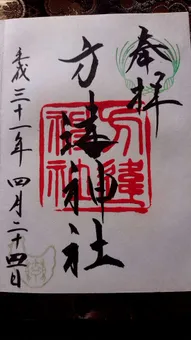 奉拝
方違神社
方違
神社
平成三十一年四月二十四日